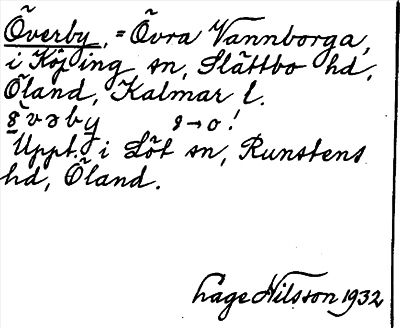 Överby, = Övra Vannborga,
i Köping sn, Slättbo hd,
Öland, Kalmar l.
8̀vəby 8→o!
Uppt. i Löt sn, Runstens
hd, Öland.
Åge Nilsson 1932